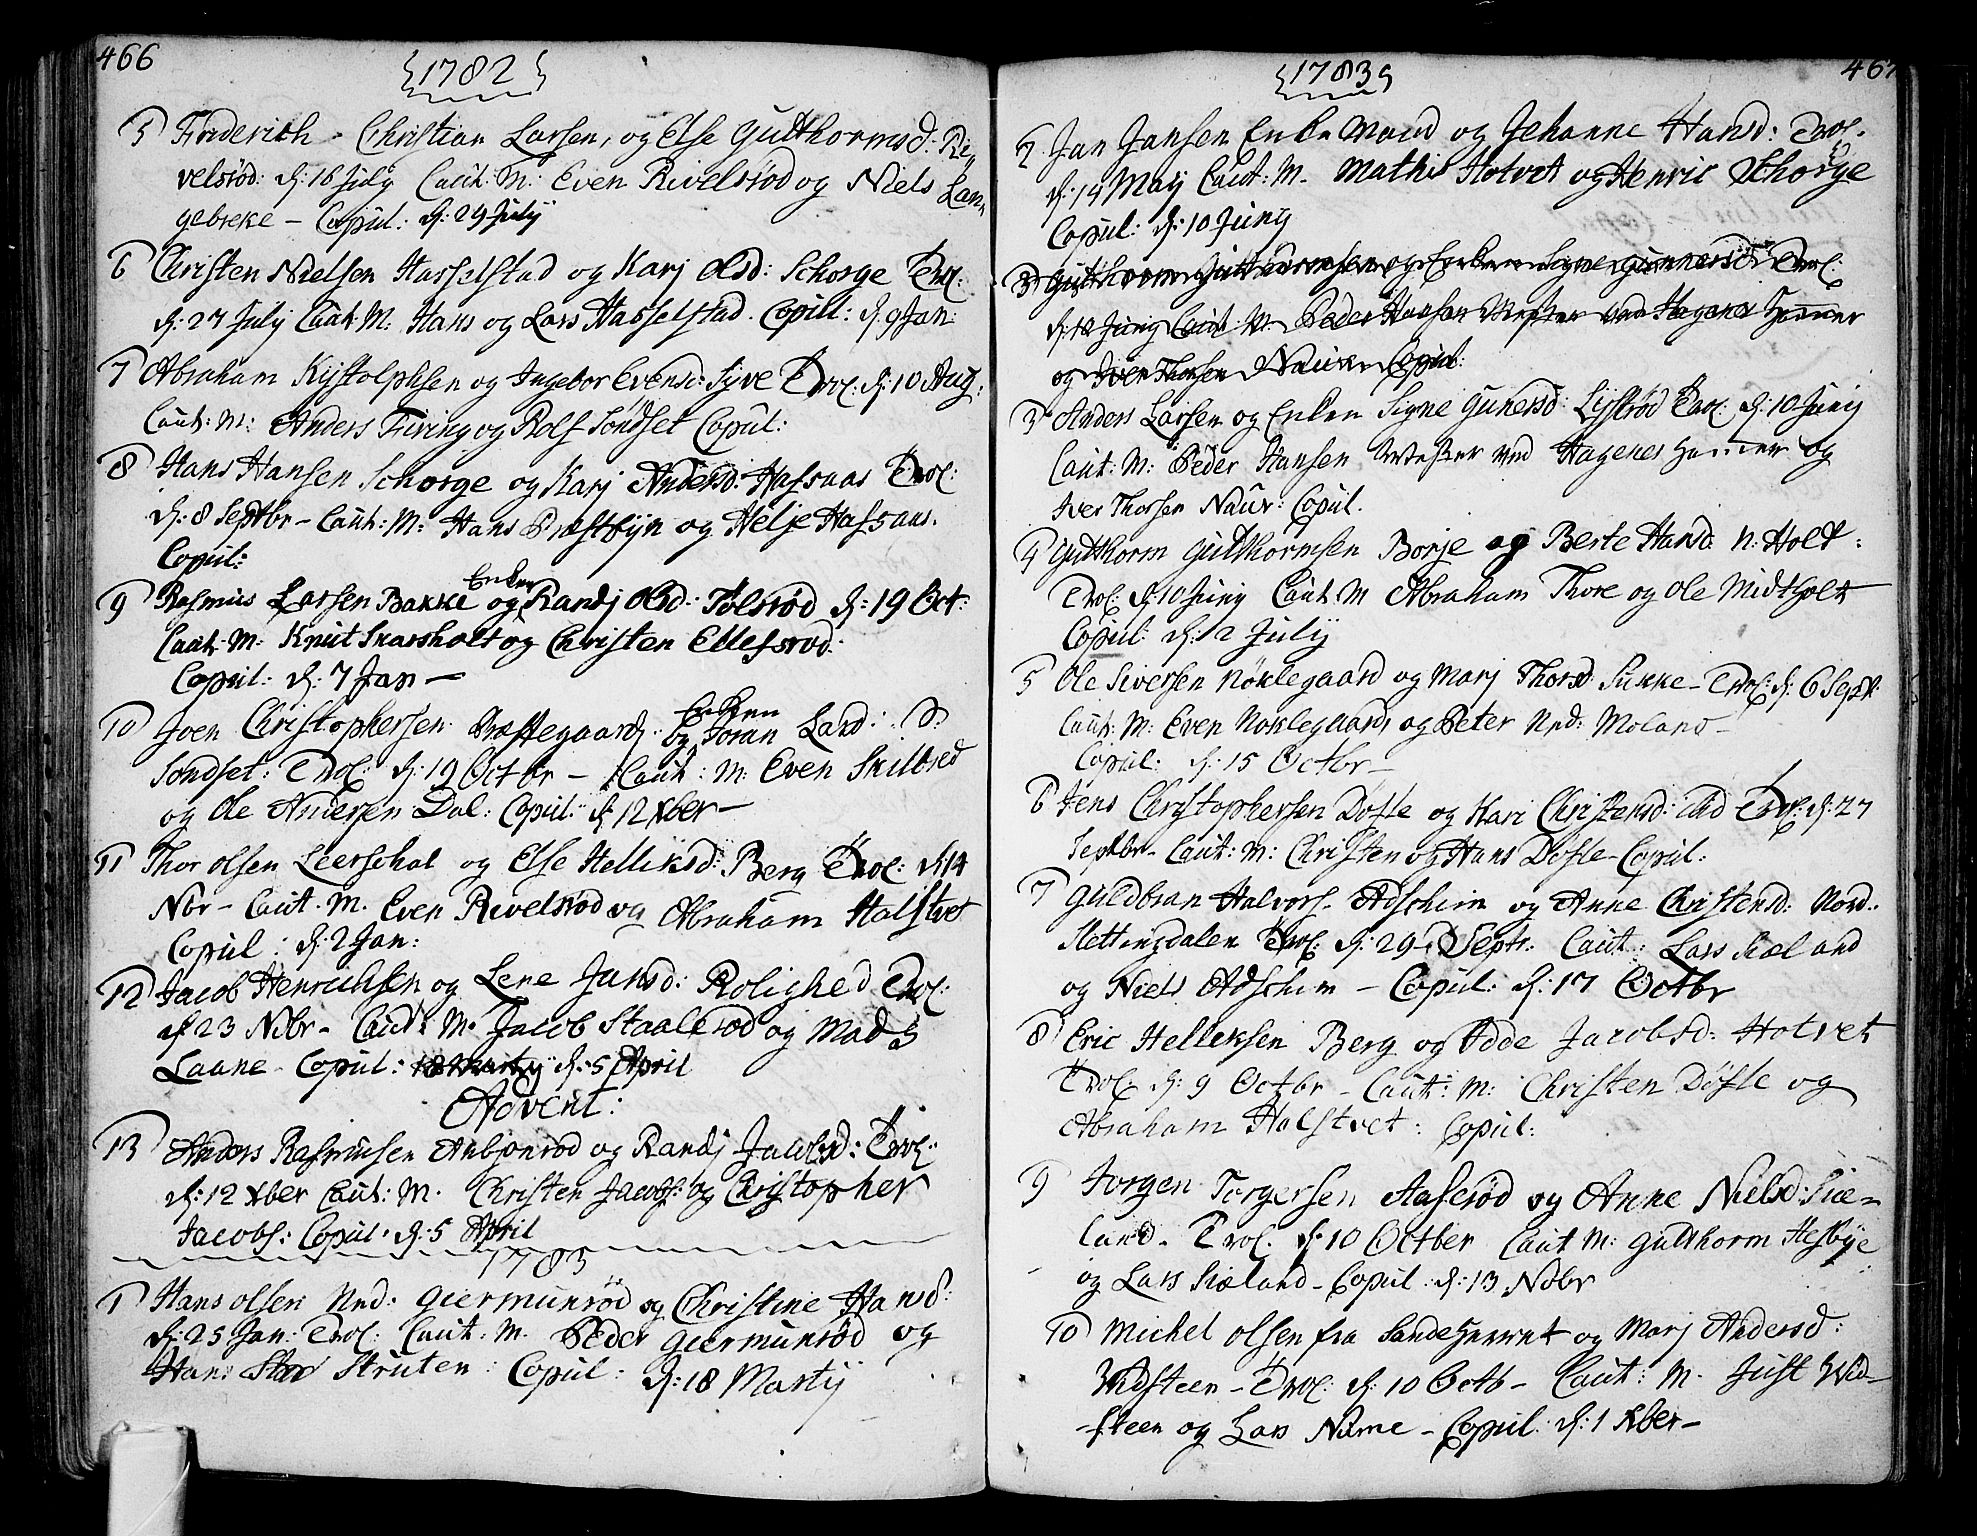 466
1782
5 Friderich Christian Larsen, og Else Gutthormsd: Ri-
velsrød: d: 16 July Caut: M: Even Rivelsrød og Niels Lan-
gebreke - Copul: d: 29 July
6 Christen Nielsen Hasselstad og Karj Olsd: Schorge Trol:
d: 27 July Caut: M: Hans og Lars Hasselstad. Copul: d: 9 Jan:
7 Abraham Kistolphsen og Ingebor Evensd: Syve Trol: d: 10 Aug:
Caut: M: Anders Firing og Rolf Söndset Copul:
8 Hans Hansen Schorge og Karj Andersd: Hafsaas Trol:
d: 8 Septbr - Caut: M: Hans Præstbyn og Helje Hafsaas.
Copul:
9 Rasmus Larsen Bakke og Enken Randj Olsd: Tølsrød d: 19 Oct:
Caut: M: Knut Snarsholt og Christen Ellefsrød:
Copul: d: 7 Jan -
10 Joen Christophersen Præstegaard: og Enken Joran Lard:
Söndset: Trol: d: 19 Octbr - Caut: M: Even Skilbred
og Ole Andersen Dal: Copul: d: 12 Xber -
11 Thor Olsen Leerschal og Else Helliksd: Berg Trol: d: 14
Nbr - Caut. M. Even Rivelsrød og Abraham Holstvet
Copul: d: 2 Jan:
12 Jacob Henrichsen og Lene Jansd: Rolighed Trol:
d: 23 Nobr - Caut: M. Jacob Staalerød og Mads
Laane - Copul: 18 Martij d: 5 April
Advent:
13 Anders Rasmusen Anbjonrød og Randj Jacobsd: Trol:
d: 12 Xber Caut: M. Christen Jacobs: og Christopher
Jacobs: Copul. d: 5 April
1783
1 Hans Olsen Ned: Giermunrød og Christine Hansd:
d: 25 Jan: Trol: Caut: M. Peder Giermunrød og
Hans Struten: Copul: d: 18 Martij
467
1783
2 Jan Jansen Enkemand og Jehanne Hansd: Trol.
d: 14 May Caut: M. Mathis Hotvet og Henric Schorge
Copul: d: 10 Juny
3 Gutthorm Gutthormsen og Enken Signe Gunnersd: Trol:
d: 10 Juny Caut: M. Peder Hansen Mester ved Hagenes Hammer
og Iver Thorsen Naur Copul:
3 Anders Larsen og Enken Signe Gunersd: Lystrød Trol: d: 10 Juny
Caut: M: Peder Hansen Mester ved Hagenes Hammer og
Iver Thorsen Naur: Copul.
4 Gutthorm Gutthormsen Borje og Berte Hansd: N: Holt:
Trol: d: 10 Juny Caut. M Abraham Thore og Ole Midtholt
Copul: d: 2 July
5 Ole Siversen Nöklegaard og Marj Thorsd: Sukke - Trol: d: 6 Sept:
Caut: M: Even Noklegaard og Peter Ned: Moland -
Copul: d: 15 Octbr -
6 Jens Christophersen Døfle og Kari Christensd: Trol: d: 27
Septbr - Caut: M: Christen og Hans Døfle - Copul:
7 Guldbran Halvors. Adscheim og Anne Christensd: Nord.
Slettingdalen Trol: d: 29 Septr: Caut: Lars Siæland
og Niels Adscheim - Copul: d: 17 Octbr
8 Eric Helleksen Berg og Odde Jacobsd: Hotvet
Trol: d: 9 Octbr - Caut: M: Christen Døfle og
Abraham Holstvet: Copul:
9 Jorgen Torgersen Aaserød og Anne Nielsd: Siæ-
land - Trol: d: 10 Octber Caut M: Gutthorm Hesbye
og Lars Siæland - Copul: d: 13 Nobr
10 Michel Olsen fra Sandehverret og Marj Andersd:
Widsteen - Trol: d: 10 Octb - Caut: M. Just Wid-
-steen og Lars Nerme - Copul: d: 1 Xber -